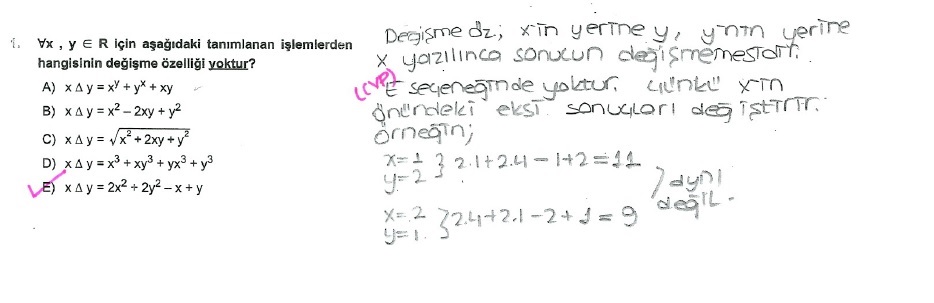 1. ∀x , y ∈ R için aşağıdaki tanımlanan işlemlerden
hangisinin değişme özelliği yoktur?
A) x Δ y = xʸ + yˣ + xy
B) x Δ y = x² – 2xy + y²
C) x Δ y = √(x² + 2xy + y²)
D) x Δ y = x³ + xy³ + yx³ + y³
E) x Δ y = 2x² + 2y² – x + y
Değişme öz; x'in yerine y, y'nin yerine
x yazılınca sonucun değişmemesidir.
(CVP) E seçeneğinde yoktur. Çünkü x'in
önündeki eksi sonuçları değiştirir.
örneğin;
x=1
y=2 } 2.1+2.4-1+2=11
x=2
y=1. } 2.4+2.1-2+1=9
aynı
değil.